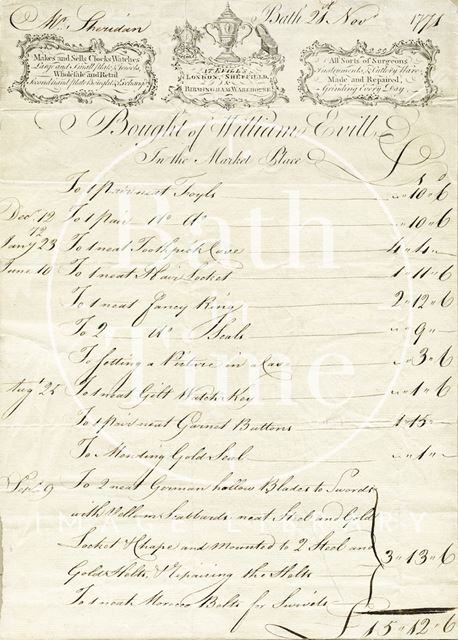 Mr. Sheridan Bath 21st Novr 1771
Makes and Sells Clocks Watches
Large and Small Plate & Jewels
Wholesale and Retail
Second hand Plate Bought & Exchang'd
AT EVILL'S
LONDON, SHEFFIELD,
&
BIRMINGHAM WAREHOUSE
All Sorts of Surgeons
Instruments & Cutlery Ware
Made and Repaired,
Grinding Every Day
Bought of William Evill
In the Market Place
£ s d
To 1 pair neat Foyls „ 10 „ 6
Decr 12 To 1 pair Do Do „ 10 „ 6
72
Jany 23 To 1 neat Toothpick Case 4 „ 4 „
June 10 To 1 neat Hair Locket 1 „ 11 „ 6
To 1 neat Fancy Ring 2 „ 12 „ 6
To 2 Do Seals „ 9 „
To setting a Picture in a Case „ 3 „ 6
Augt 25 To 1 neat Gilt Watch Key „ 1 „ 6
To 1 pair neat Garnet Buttons 1 „ 15 „
To Mending Gold Seal „ 1 „
Sepr 9 To 2 neat German hollow Blades to Swords
with Vellum Scabbards neat Steel and Gold
Locket & Chape and Mounted to 2 Steel and
Gold Hilts, & repairing the Hilts 3 „ 13 „ 6
To 1 neat Belts for Swords
£ 15 „ 12 „ 6
Bath
in
Time
IMAGE LIBRARY